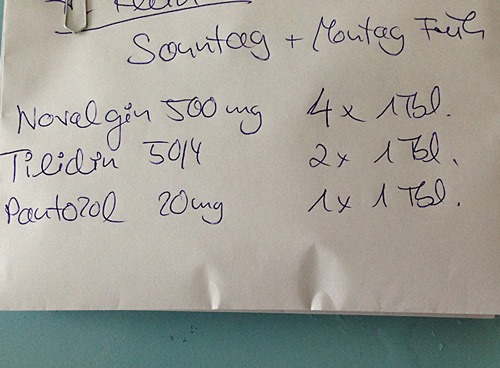 Sonntag + Montag Früh
Novalgin 500mg 4x 1Tbl.
Tilidin 50/4 2x 1Tbl.
Pantozol 20mg 1x 1Tbl.